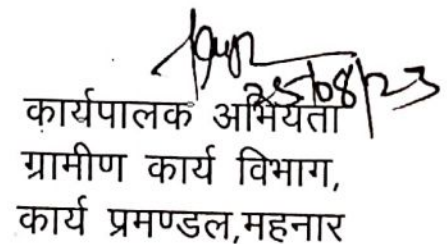 25/08/23
कार्यपालक अभियंता
ग्रामीण कार्य विभाग,
कार्य प्रमण्डल,महनार